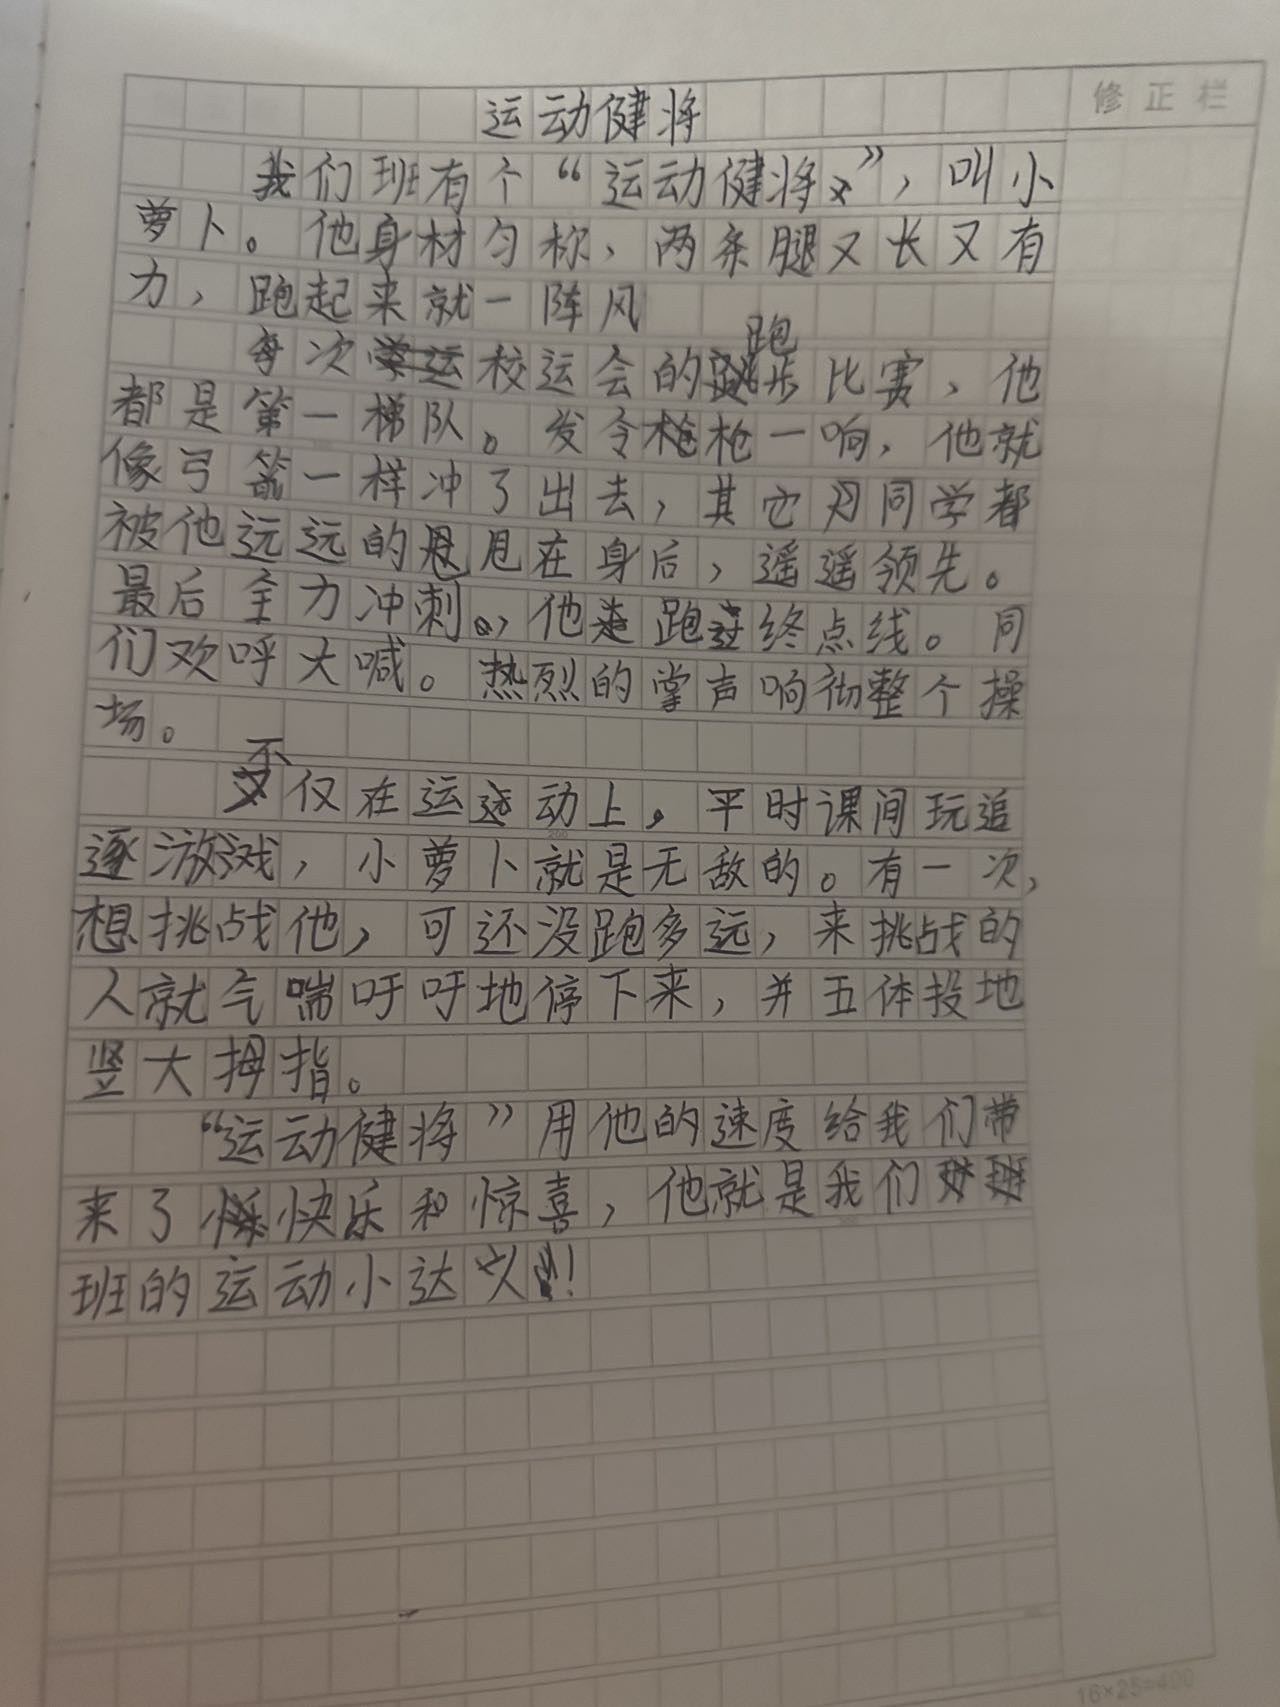 修正栏
运动健将
我们班有个“运动健将”，叫小
萝卜。他身材匀称，两条腿又长又有
力，跑起来就一阵风
每次校运会的跑步比赛，他
都是第一梯队。发令枪一响，他就
像弓箭一样冲了出去，其它同学都
被他远远的甩在身后，遥遥领先。
最后全力冲刺，他跑过终点线。同
们欢呼大喊。热烈的掌声响彻整个操
场。
不仅在运动上。平时课间玩追
逐游戏，小萝卜就是无敌的。有一次，
想挑战他，可还没跑多远，来挑战的
人就气喘吁吁地停下来，并五体投地
竖大拇指。
“运动健将”用他的速度给我们带
来了快乐和惊喜，他就是我们
班的运动小达人！
16×25=400